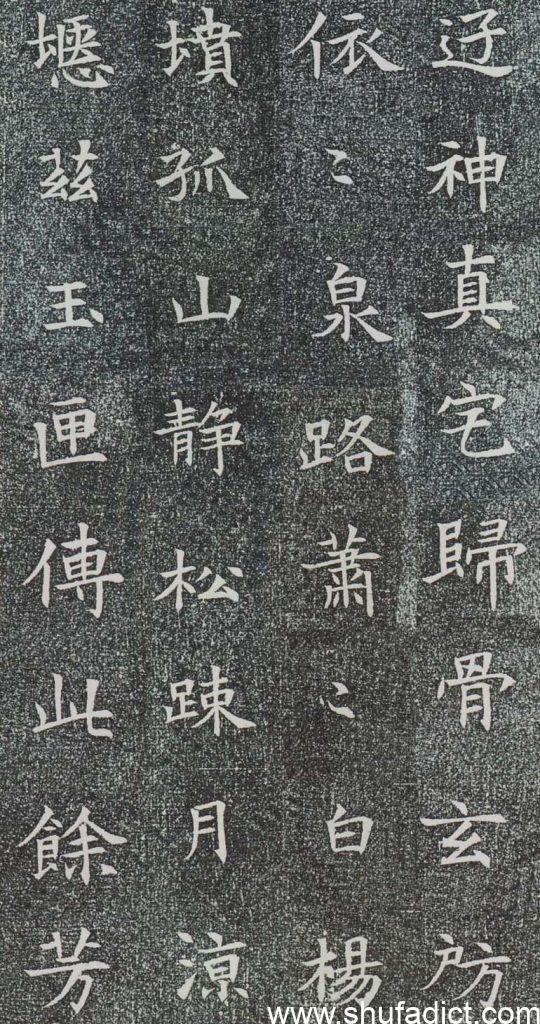 迓神真宅歸骨玄房
依〻泉路蕭〻白楊
墳孤山静松踈月涼
茲玉匣傳此餘芳
www.shufadict.com